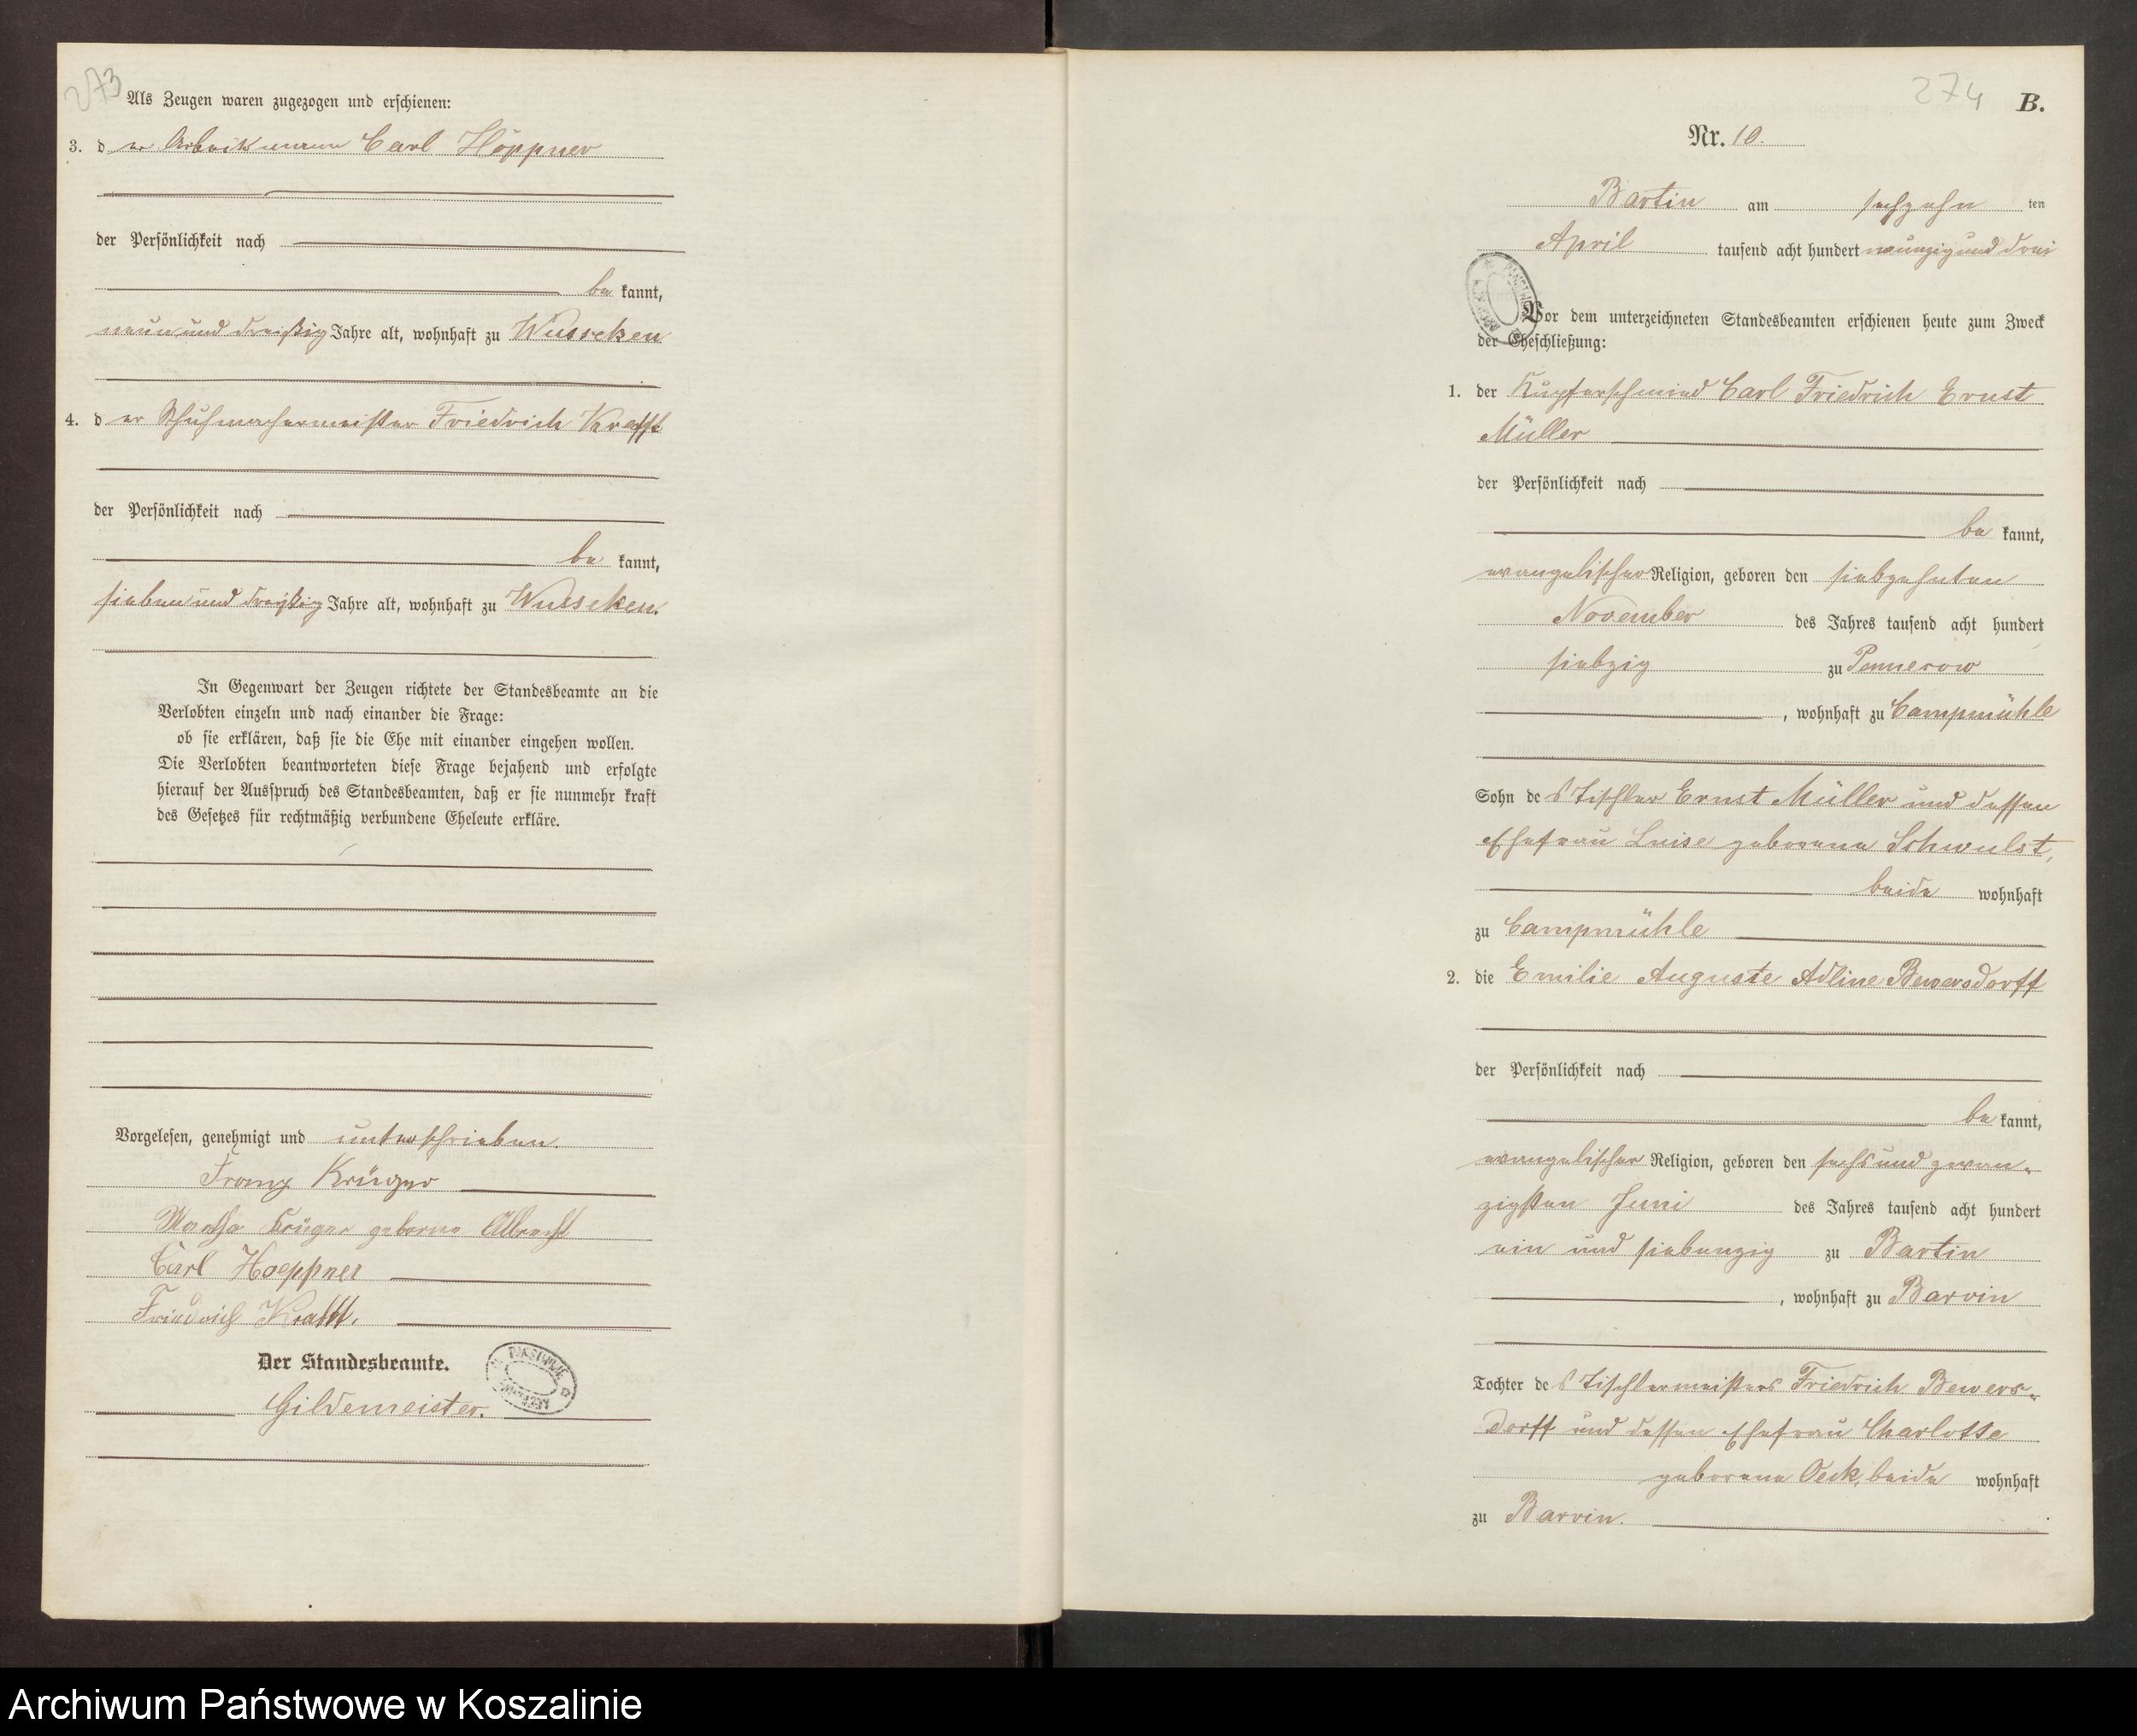 273
Als Zeugen waren zugezogen und erschienen:
3. der Arbeitsmann Carl Höppner
der Persönlichkeit nach
bekannt,
neun und dreißig Jahre alt, wohnhaft zu Wusseken
4. der Schuhmachermeister Friedrich Krafft
der Persönlichkeit nach
bekannt,
sieben und dreißig Jahre alt, wohnhaft zu Wusseken.
In Gegenwart der Zeugen richtete der Standesbeamte an die
Verlobten einzeln und nach einander die Frage:
ob sie erklären, daß sie die Ehe mit einander eingehen wollen.
Die Verlobten beantworteten diese Frage bejahend und erfolgte
hierauf der Ausspruch des Standesbeamten, daß er sie nunmehr kraft
des Gesetzes für rechtmäßig verbundene Eheleute erkläre.
Vorgelesen, genehmigt und unterschrieben.
Franz Krüger
Martha Krüger geborne Albrecht
Carl Hoeppner
Friedrich Krafft.
Der Standesbeamte.
Gildemeister.
274
B.
Nr. 10.
Bartin am sechzehnten
April tausend acht hundert neunzig und drei
Vor dem unterzeichneten Standesbeamten erschienen heute zum Zweck
der Eheschließung:
1. der Kupferschmied Carl Friedrich Ernst
Müller
der Persönlichkeit nach
bekannt,
evangelischer Religion, geboren den siebzehnten
November des Jahres tausend acht hundert
siebzig zu Pennerow
, wohnhaft zu Campmühle
Sohn des Tischler Ernst Müller und dessen
Ehefrau Luise geborene Schwulst,
beide wohnhaft
zu Campmühle
2. die Emilie Auguste Adline Bewersdorff
der Persönlichkeit nach
bekannt,
evangelischer Religion, geboren den sechs und zwan-
zigsten Juni des Jahres tausend acht hundert
ein und siebenzig zu Bartin
, wohnhaft zu Barvin
Tochter des Tischlermeisters Friedrich Bewers-
dorff und dessen Ehefrau Charlotte
geborene Oeck, beide wohnhaft
zu Barvin.
Archiwum Państwowe w Koszalinie